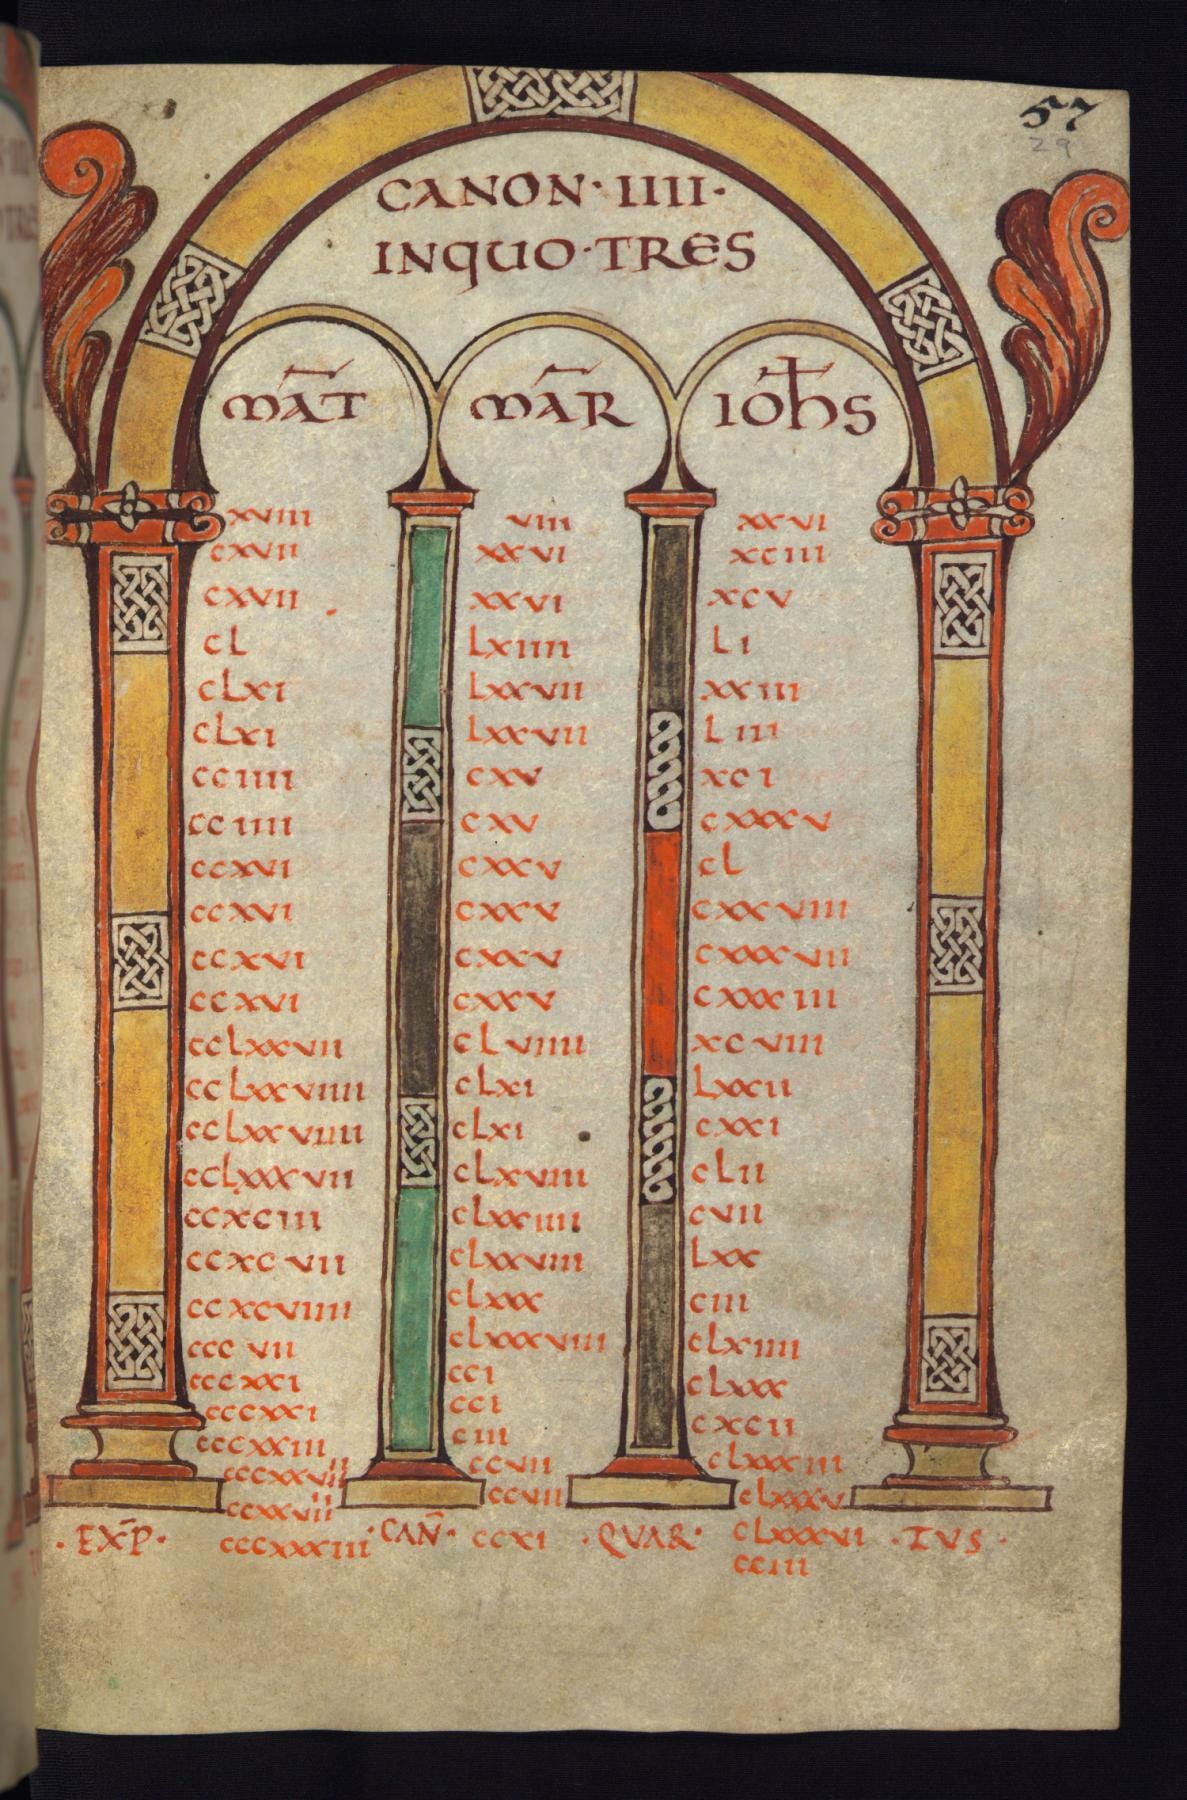 57
29
CANON · IIII ·
INQUO · TRES
MAT MAR IOHS
XVIII VIII XXVI
CXVII XXVI XCIII
CXVII XXVI XCV
CL LXIIII LI
CLXI LXXVII XXIII
CLXI LXXVII LIII
CCIIII CXV XCI
CCIIII CXV CXXXV
CCXVI CXXV CL
CCXVI CXXV CXXVIII
CCXVI CXXV CXXXVII
CCXVI CXXV CXXXIII
CCLXXVII CLVIIII XCVIII
CCLXXVIIII CLXI LXXII
CCLXXVIIII CLXI CXXI
CCLXXXVII CLXVIII CLII
CCXCIII CLXXIIII CVII
CCXCVII CLXXVIII LXX
CCXCVIIII CLXXX CIII
CCCVII CLXXXVIII CLXIIII
CCCXXI CCI CLXXX
CCCXXI CCI CXCII
CCCXXIII CIII CLXXXIII
CCCXXVII CCVII CLXXXV
CCXXVII CCVII CLXXXVI
CCCXXXIII CCXI CCIII
· EXP · · CAN · · QUAR · · TUS ·